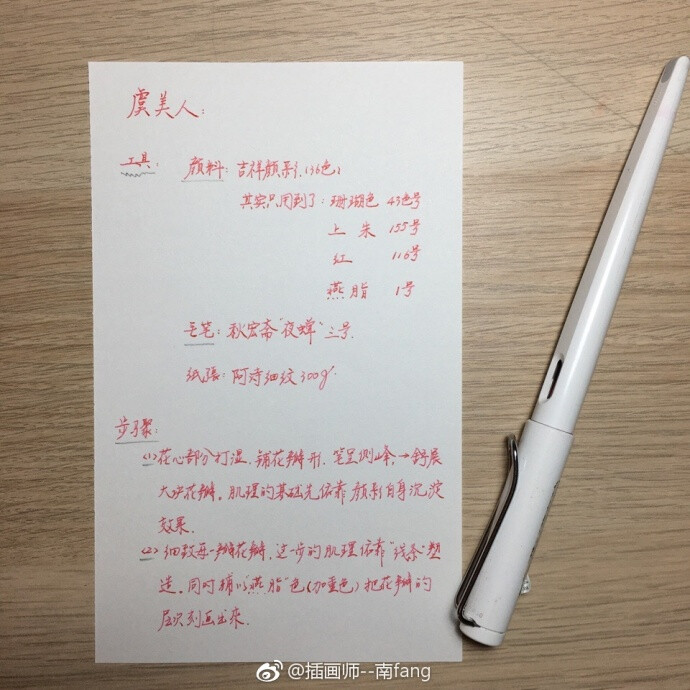 虞美人：
工具： 颜料：吉祥颜彩（36色）
其实只用到了：珊瑚色 43色号
上朱 155号
红 116号
燕脂 1号
毛笔：秋宏斋"夜蝉"三号.
纸張：阿诗细纹300g.
步骤：
(1) 花心部分打湿.铺花瓣形.笔呈侧峰，→舒展
大块花瓣.肌理的基础先依靠颜彩自身沉淀
效果.
(2) 细致每一瓣花瓣.这一步的肌理依靠"线条"塑
造.同时铺以"燕脂"色(加重色)把花瓣的
层次刻画出来.
@插画师--南fang